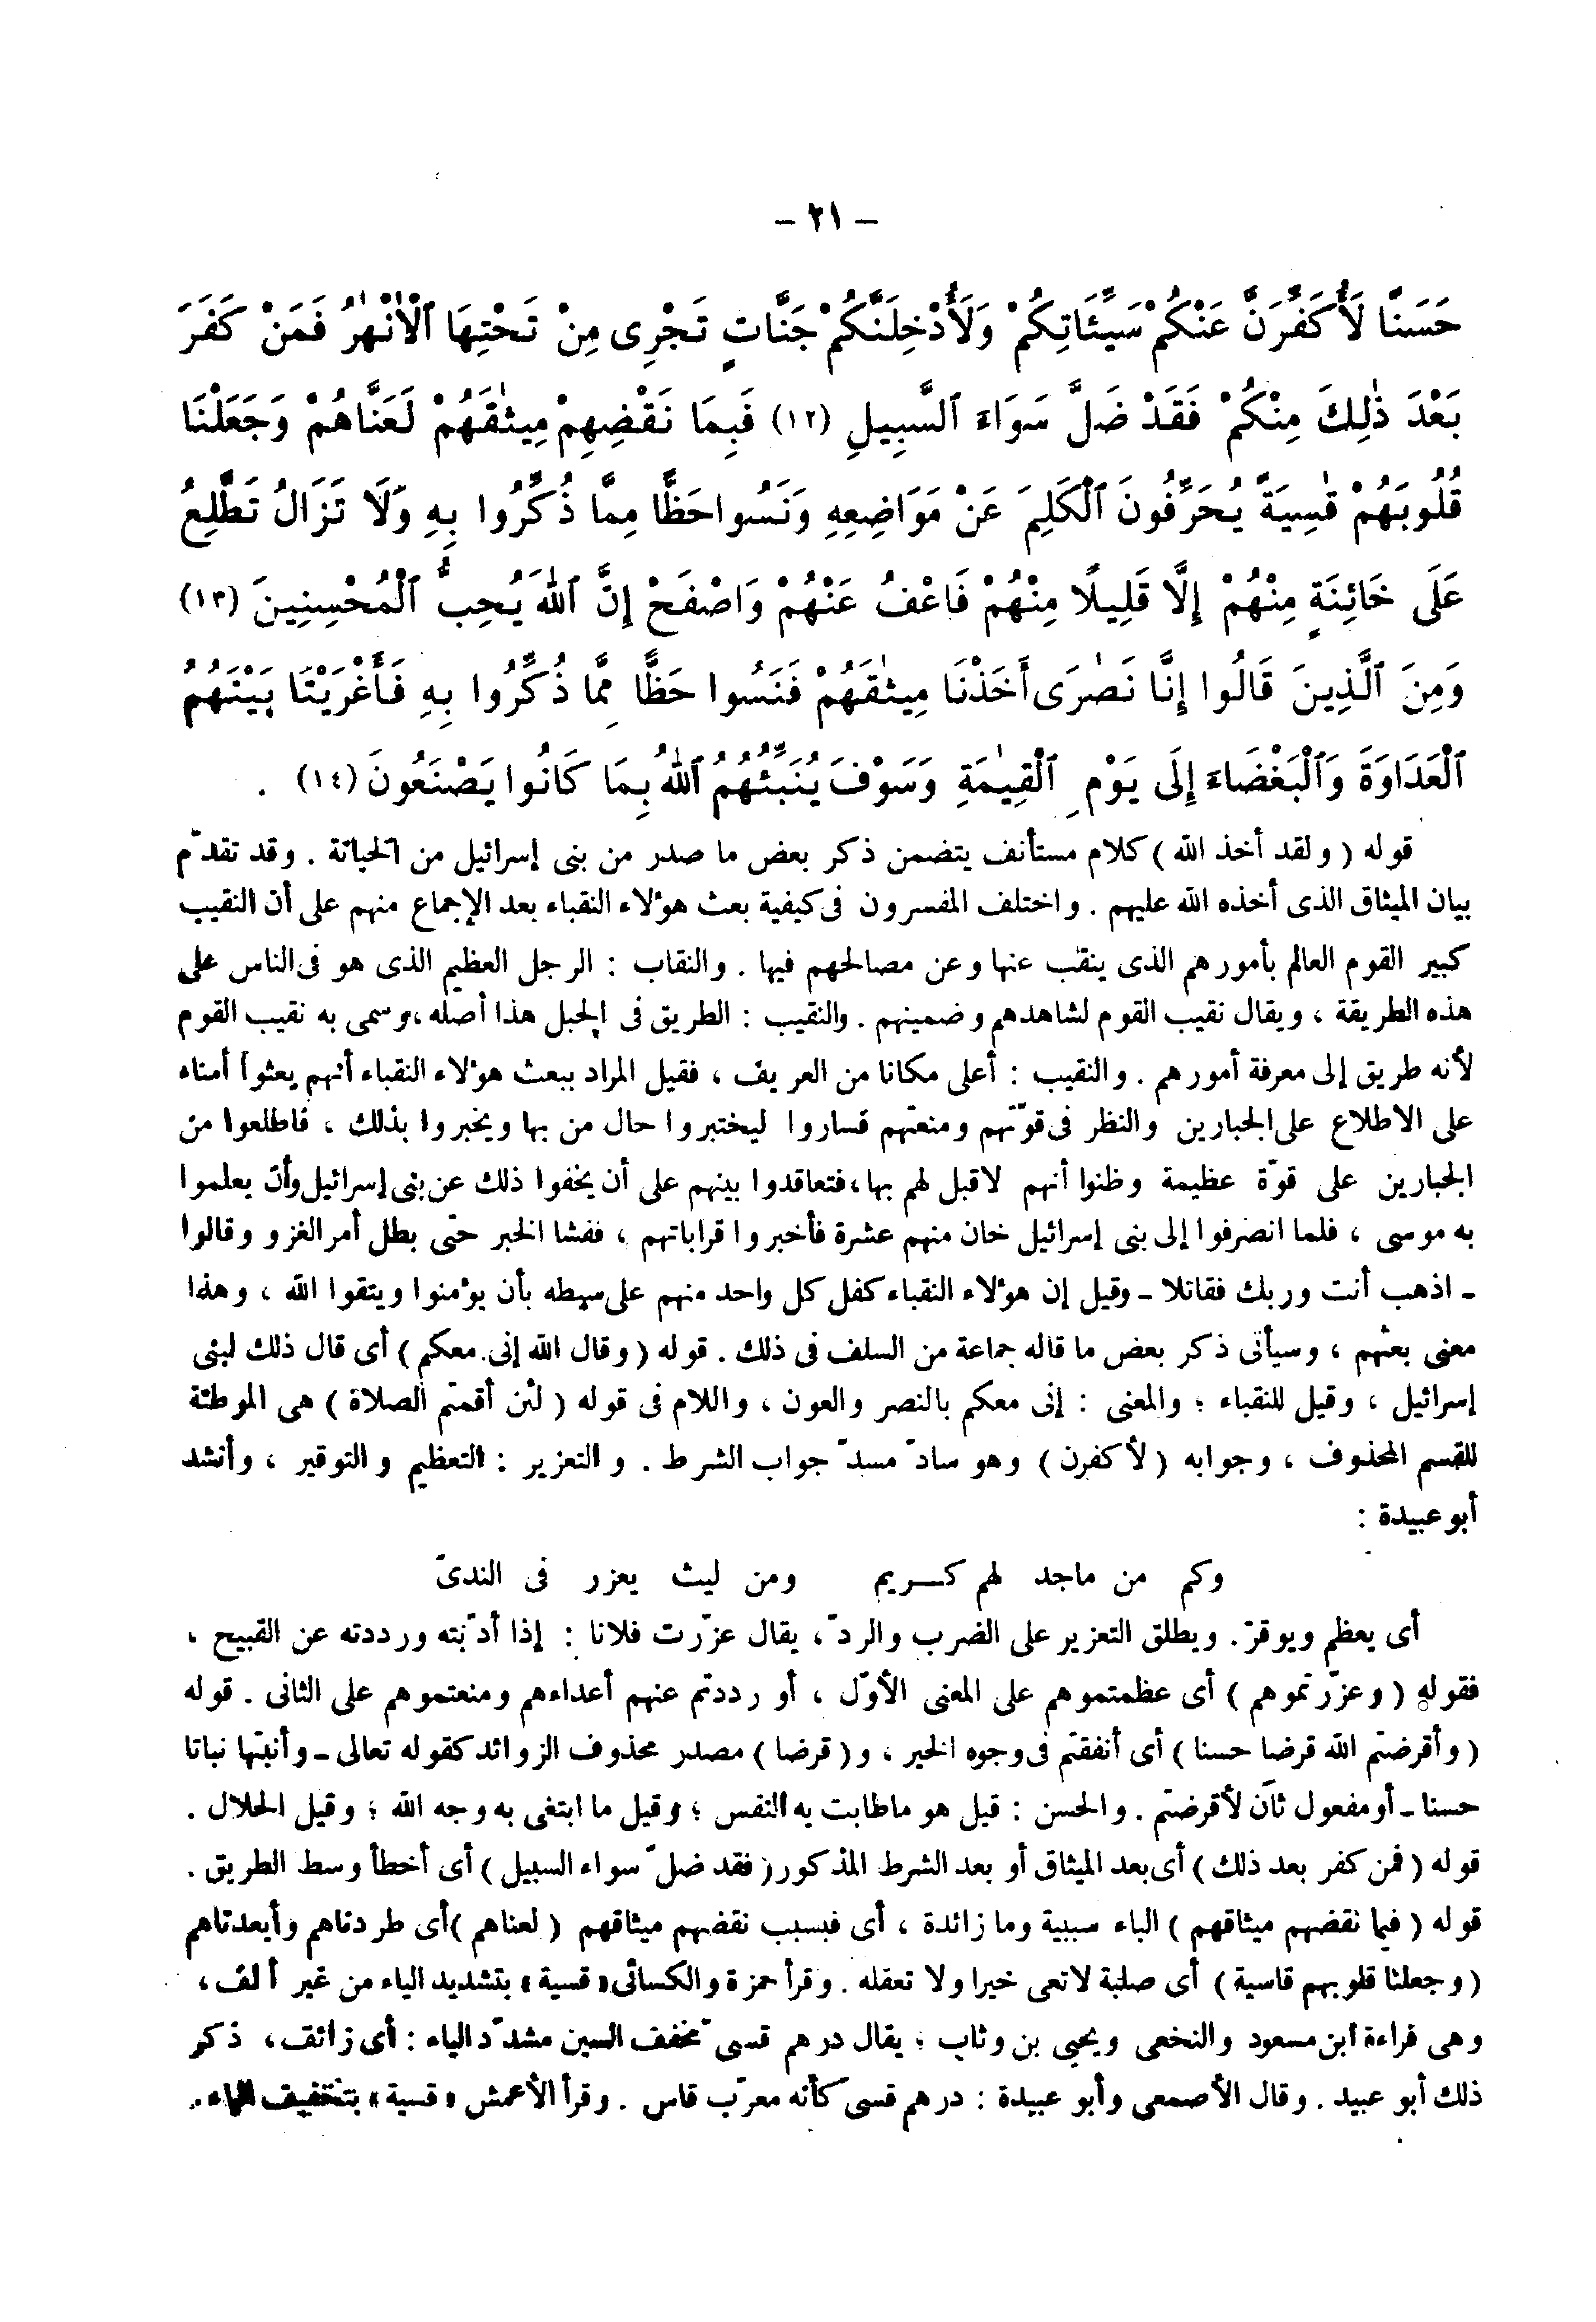 – ٢١ –
حَسَنًا لَأُكَفِّرَنَّ عَنْكُمْ سَيِّئَاتِكُمْ وَلَأُدْخِلَنَّكُمْ جَنَّاتٍ تَجْرِى مِنْ تَحْتِهَا ٱلْأَنْهٰرُ فَمَنْ كَفَرَ
بَعْدَ ذٰلِكَ مِنْكُمْ فَقَدْ ضَلَّ سَوَاءَ ٱلسَّبِيلِ (١٢) فَبِمَا نَقْضِهِمْ مِيثٰقَهُمْ لَعَنَّاهُمْ وَجَعَلْنَا
قُلُوبَهُمْ قٰسِيَةً يُحَرِّفُونَ ٱلْكَلِمَ عَنْ مَوَاضِعِهِ وَنَسُوا حَظًّا مِمَّا ذُكِّرُوا بِهِ وَلَا تَزَالُ تَطَّلِعُ
عَلَى خَائِنَةٍ مِنْهُمْ إِلَّا قَلِيلًا مِنْهُمْ فَاعْفُ عَنْهُمْ وَاصْفَحْ إِنَّ ٱللّٰهَ يُحِبُّ ٱلْمُحْسِنِينَ (١٣)
وَمِنَ ٱلَّذِينَ قَالُوا إِنَّا نَصٰرَى أَخَذْنَا مِيثٰقَهُمْ فَنَسُوا حَظًّا مِمَّا ذُكِّرُوا بِهِ فَأَغْرَيْنَا بَيْنَهُمُ
ٱلْعَدَاوَةَ وَٱلْبَغْضَاءَ إِلَى يَوْمِ ٱلْقِيٰمَةِ وَسَوْفَ يُنَبِّئُهُمُ ٱللّٰهُ بِمَا كَانُوا يَصْنَعُونَ (١٤) .
قوله ( ولقد أخذ الله ) كلام مستأنف يتضمن ذكر بعض ما صدر من بنى إسرائيل من الخيانة . وقد تقدّم
بيان الميثاق الذى أخذه الله عليهم . واختلف المفسرون فى كيفية بعث هؤلاء النقباء بعد الإجماع منهم على أن النقيب
كبير القوم العالم بأمورهم الذى ينقب عنها وعن مصالحهم فيها . والنقاب : الرجل العظيم الذى هو فى الناس على
هذه الطريقة ، ويقال نقيب القوم لشاهدهم وضمينهم . والنقيب : الطريق فى الجبل هذا أصله ، وسمى به نقيب القوم
لأنه طريق إلى معرفة أمورهم . والنقيب : أعلى مكانا من العريف ، فقيل المراد ببعث هؤلاء النقباء أنهم بعثوا أمناء
على الاطلاع على الجبارين والنظر فى قوّتهم ومنعتهم فساروا ليختبروا حال من بها ويخبروا بذلك ، فاطلعوا من
الجبارين على قوّة عظيمة وظنوا أنهم لاقبل لهم بها ، فتعاقدوا بينهم على أن يخفوا ذلك عن بنى إسرائيل وأن يعلموا
به موسى ، فلما انصرفوا إلى بنى إسرائيل خان منهم عشرة فأخبروا قراباتهم ، ففشا الخبر حتى بطل أمر الغزو وقالوا
ـ اذهب أنت وربك فقاتلا ـ وقيل إن هؤلاء النقباء كفل كل واحد منهم على سبطه بأن يؤمنوا ويتقوا الله ، وهذا
معنى بعثهم ، وسيأتى ذكر بعض ما قاله جماعة من السلف فى ذلك . قوله ( وقال الله إنى معكم ) أى قال ذلك لبنى
إسرائيل ، وقيل للنقباء ؛ والمعنى : إنى معكم بالنصر والعون ، واللام فى قوله ( لئن أقمتم الصلاة ) هى الموطئة
للقسم المحذوف ، وجوابه ( لأكفرن ) وهو سادّ مسدّ جواب الشرط . والتعزير : التعظيم والتوقير ، وأنشد
أبو عبيدة :
وكم من ماجد لهم كـــريم ومن ليث يعزر فى الندىّ
أى يعظم ويوقرّ . ويطلق التعزير على الضرب والردّ ، يقال عزّرت فلانا : إذا أدّبته ورددته عن القبيح ،
فقوله ( وعزّرتموهم ) أى عظمتموهم على المعنى الأوّل ، أو رددتم عنهم أعداءهم ومنعتموهم على الثانى . قوله
( وأقرضتم الله قرضا حسنا ) أى أنفقتم فى وجوه الخير ، و ( قرضا ) مصدر محذوف الزوائد كقوله تعالى ـ وأنبتها نباتا
حسنا ـ أو مفعول ثان لأقرضتم . والحسن : قيل هو ماطابت به النفس ؛ وقيل ما ابتغى به وجه الله ؛ وقيل الحلال .
قوله ( فمن كفر بعد ذلك ) أى بعد الميثاق أو بعد الشرط المذكور ( فقد ضلّ سواء السبيل ) أى أخطأ وسط الطريق .
قوله ( فبما نقضهم ميثاقهم ) الباء سببية وما زائدة ، أى فبسبب نقضهم ميثاقهم ( لعناهم ) أى طردناهم وأبعدناهم
( وجعلنا قلوبهم قاسية ) أى صلبة لاتعى خيرا ولا تعقله . وقرأ حمزة والكسائى « قسية » بتشديد الياء من غير ألف ،
وهى قراءة ابن مسعود والنخعى ويحيى بن وثاب ؛ يقال درهم قسىّ مخفف السين مشدّد الياء : أى زائف ، ذكر
ذلك أبو عبيد . وقال الأصمعى وأبو عبيدة : درهم قسىّ كأنه معرّب قاس . وقرأ الأعمش « قسية » بتخفيف الياء .